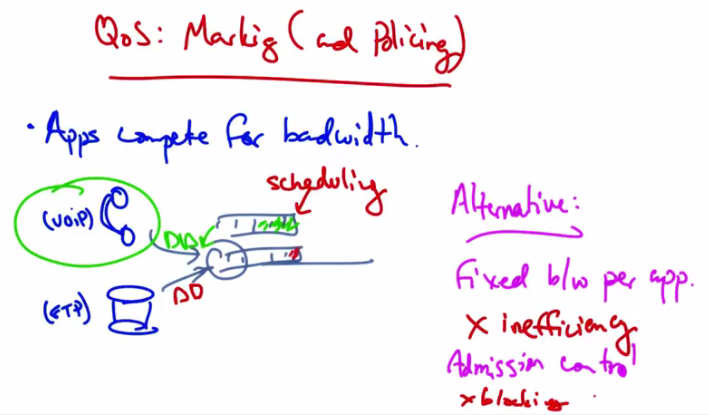 QoS: Markig (and Policing)
· Apps compete for badwidth.
scheduling
(VOIP)
(FTP)
Alternative:
Fixed b/w per app.
x inefficiency
Admission control
x blocking